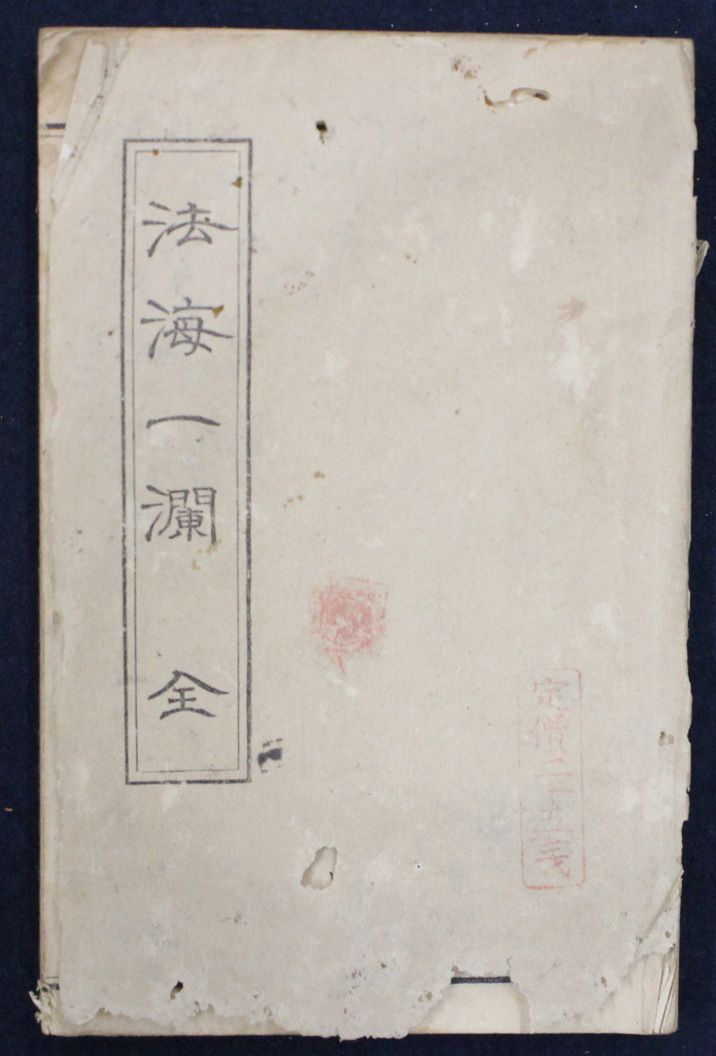 定價二十五戔
法海一瀾 全